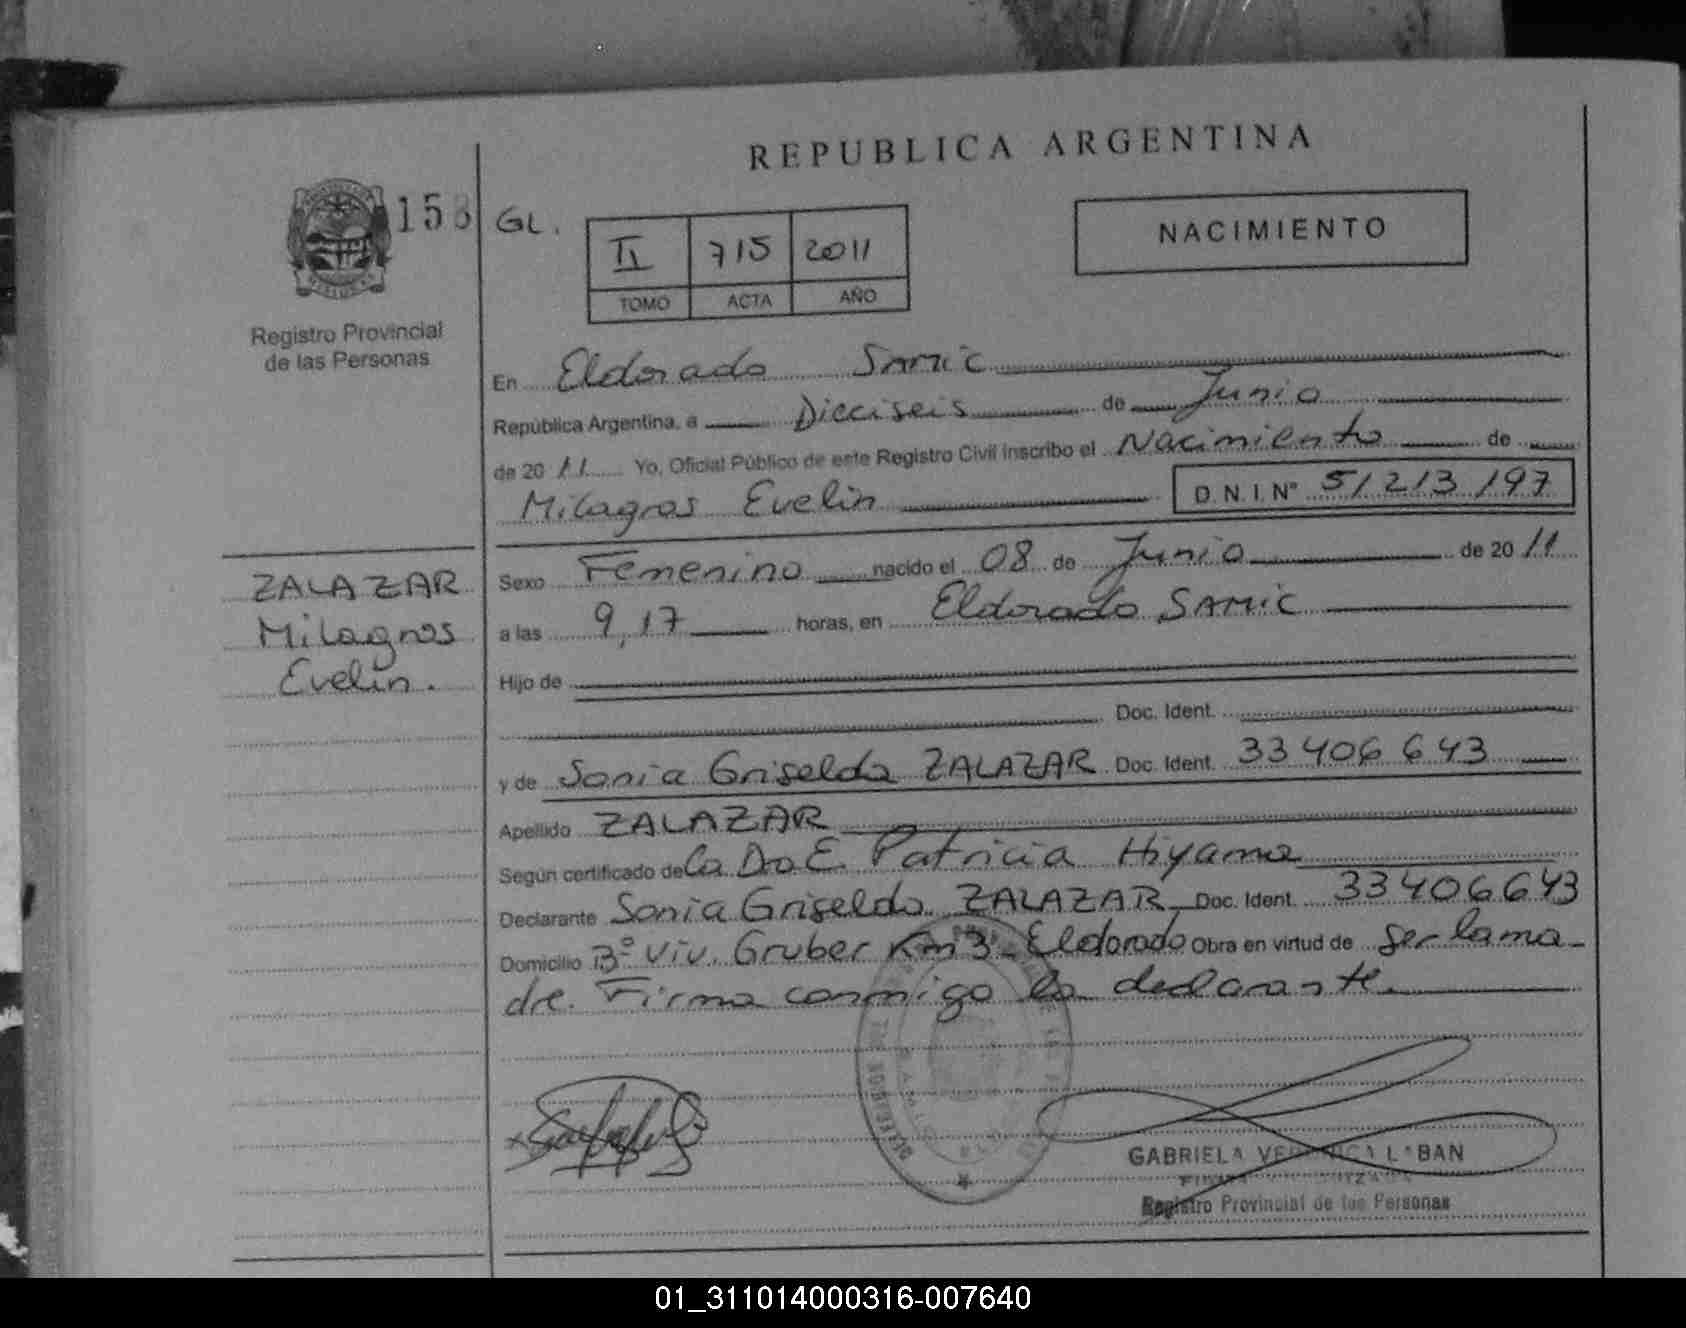 REPUBLICA ARGENTINA
NACIMIENTO
GL.
II 715 2011
TOMO ACTA AÑO
Registro Provincial
de las Personas
En Eldorado SAMIC
República Argentina, a Dieciseis de Junio
de 2011 Yo, Oficial Público de este Registro Civil inscribo el Nacimiento de
Milagros Evelin D.N.I. Nº 51213197
ZALAZAR
Milagros
Evelin.
Sexo Femenino nacido el 08 de Junio de 2011
a las 9,17 horas, en Eldorado SAMIC
Hijo de
Doc. Ident.
y de Sonia Griselda ZALAZAR Doc. Ident. 33406643
Apellido ZALAZAR
Según certificado de la Dra E. Patricia Hiyama
Declarante Sonia Griselda ZALAZAR Doc. Ident. 33406643
Domicilio Bº Viv. Gruber Km 3 - Eldorado Obra en virtud de ser la ma-
dre. Firma conmigo la declarante.
GABRIELA
Registro Provincial de las Personas
01_311014000316-007640